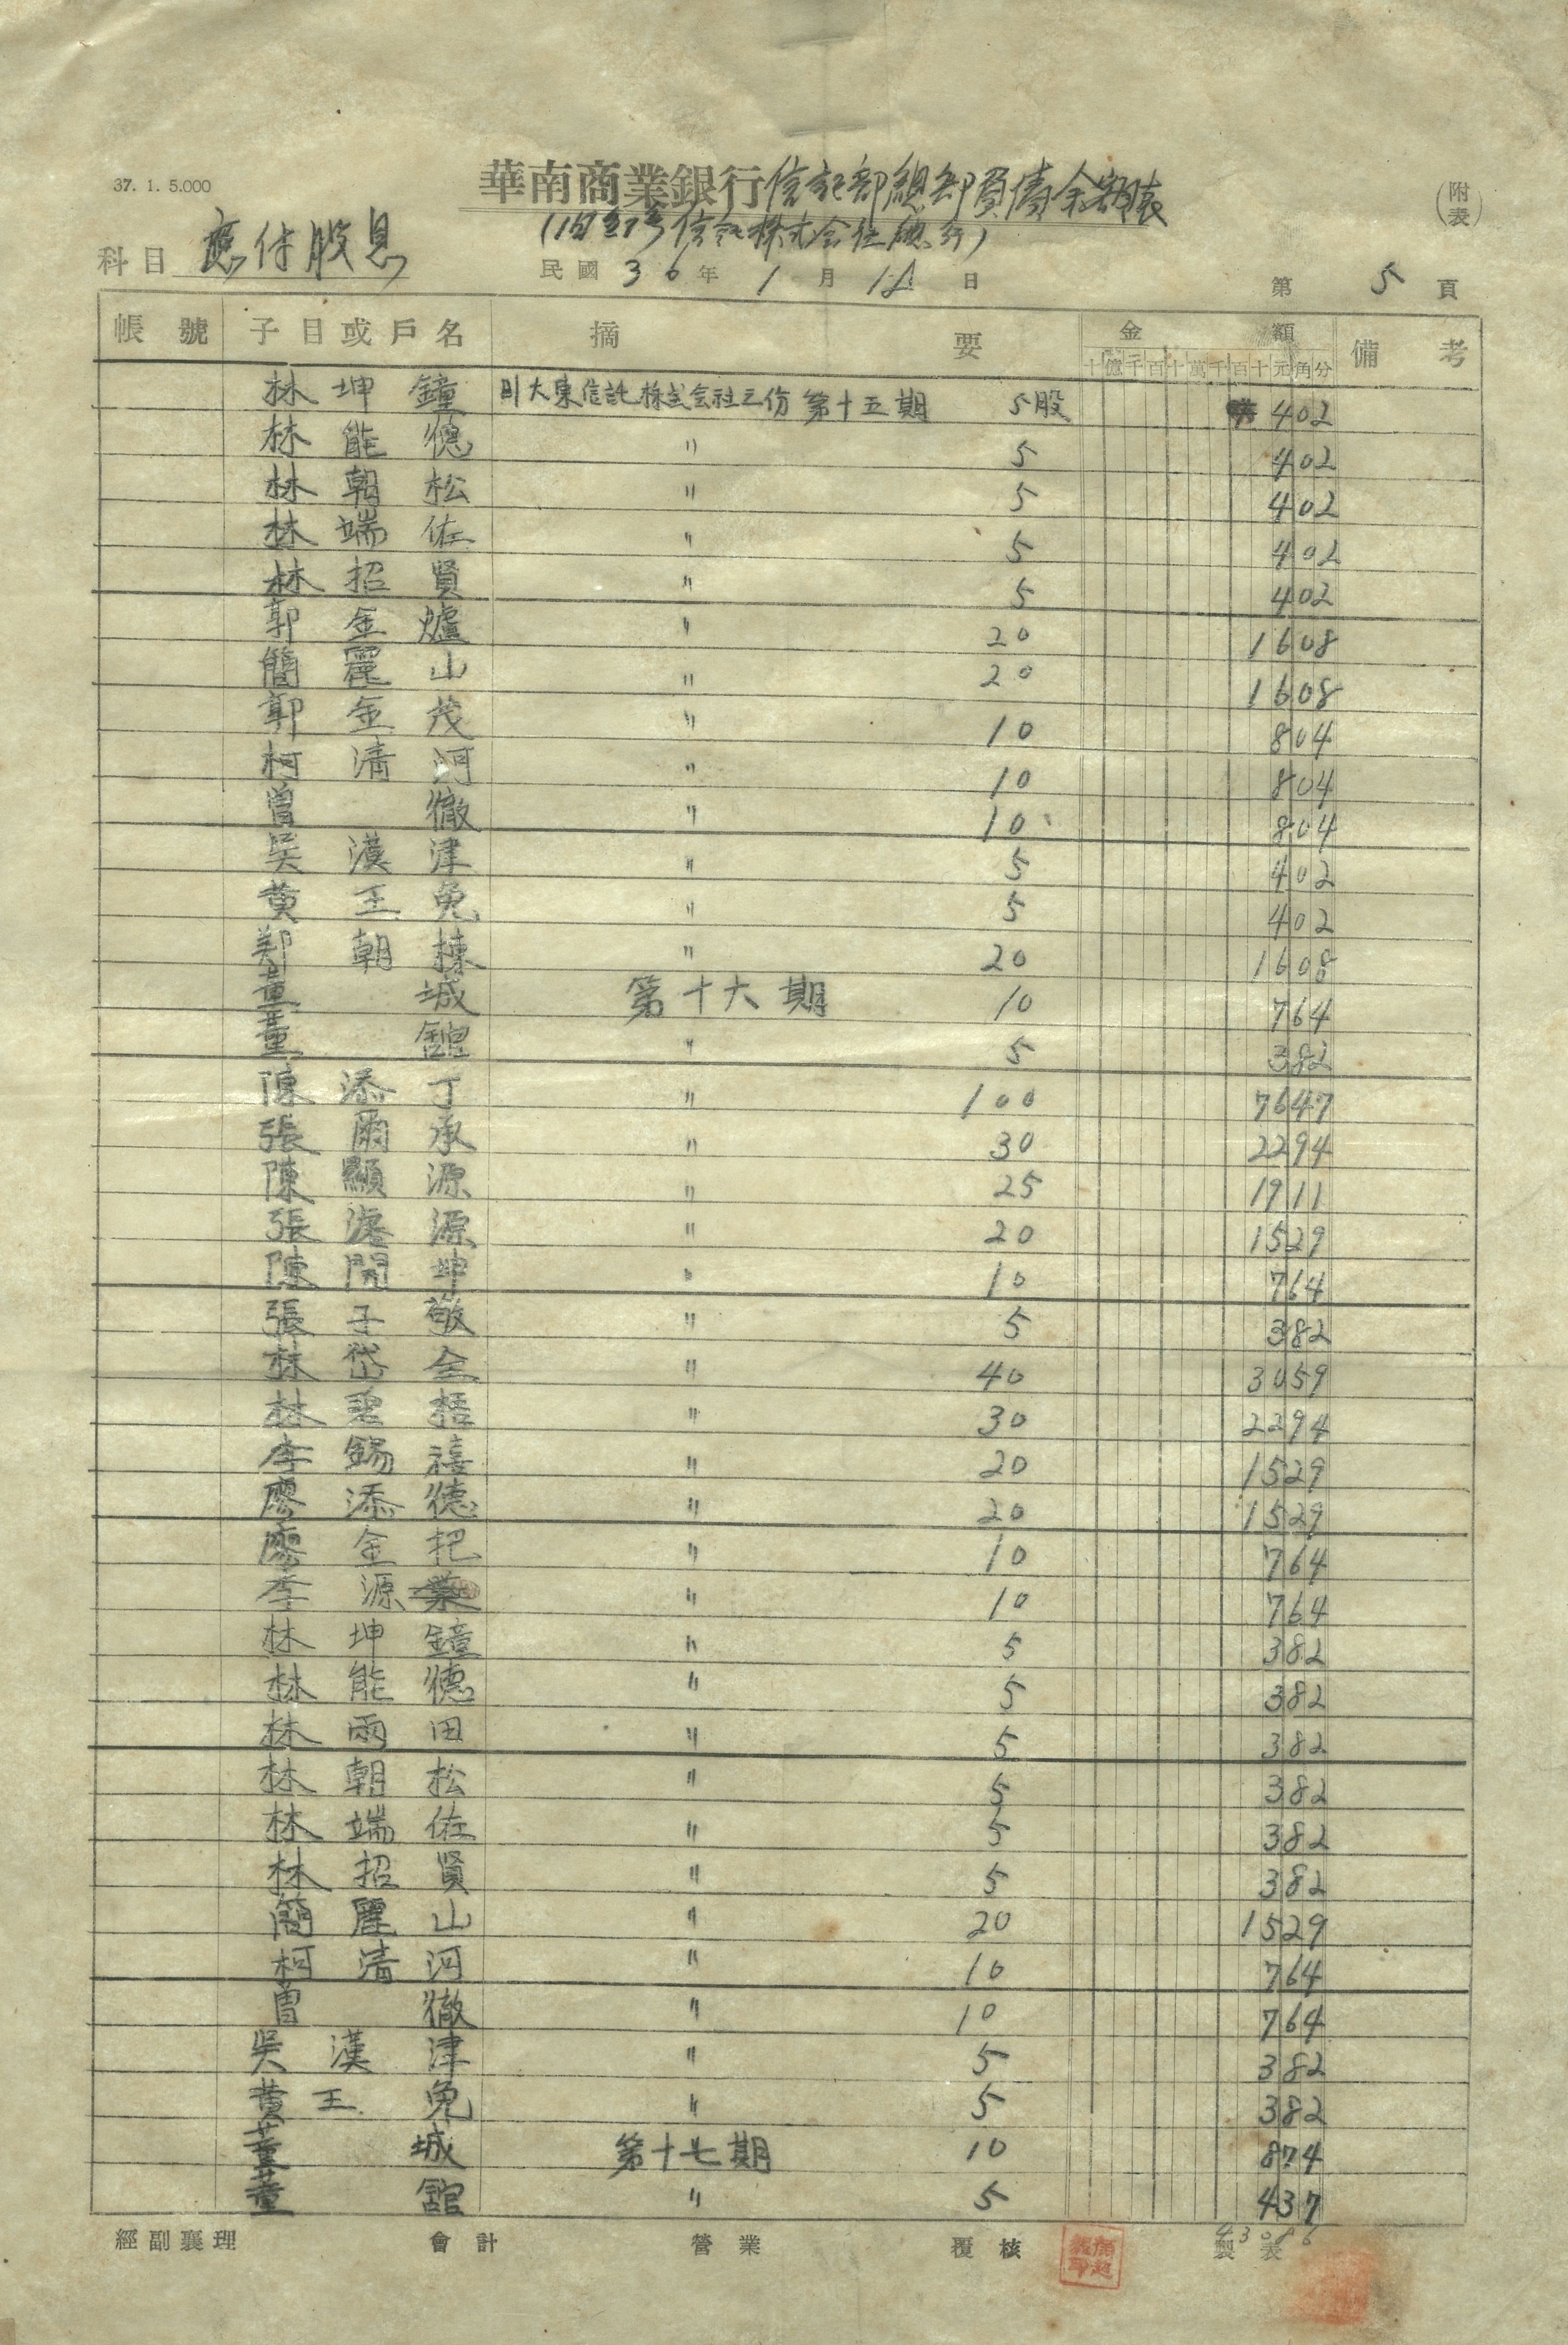 37. 1. 5.000
華南商業銀行信託部總部負債余額表
(附表)
科目 應付股息
民國 36 年 1 月 日
第 5 頁
帳號 子目或戶名 摘要 金額 備考
十億千百十萬千百十元角分
林坤鐘 旧大東信託株式会社之份 第十五期 5股 402
林能德 〃 5 402
林朝松 〃 5 402
林端佐 〃 5 402
林招賢 〃 5 402
郭金爐 〃 20 1608
簡麗山 〃 20 1608
郭金茂 〃 10 804
柯清河 〃 10 804
曾徹 〃 10 804
吳漢津 〃 5 402
黃王兔 〃 5 402
鄭朝棟 〃 20 1608
董城 第十六期 10 764
董舘 〃 5 382
陳添丁 〃 100 7647
張爾承 〃 30 2294
陳顯源 〃 25 1911
張濬源 〃 20 1529
陳閙坤 〃 10 764
張子敬 〃 5 382
林岱金 〃 40 3059
林碧梧 〃 30 2294
李錫禧 〃 20 1529
廖添德 〃 20 1529
廖金把 〃 10 764
李源 〃 10 764
林坤鐘 〃 5 382
林能德 〃 5 382
林雨田 〃 5 382
林朝松 〃 5 382
林端佐 〃 5 382
林招賢 〃 5 382
簡麗山 〃 20 1529
柯清河 〃 10 764
曾徹 〃 10 764
吳漢津 〃 5 382
黃王兔 〃 5 382
董城 第十七期 10 874
董舘 〃 5 437
43086
經副襄理 會計 營業 覆核 製表